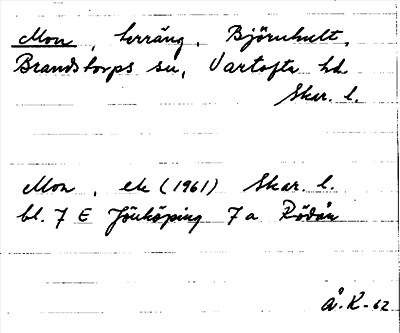 Mon, terräng, Björnhult,
Brandstorps sn, Vartofta hd.
Skar. l.
Mon, ek (1961) Skar. l.
bl. 7 E Jönköping 7 a Rödån
Å.K-62